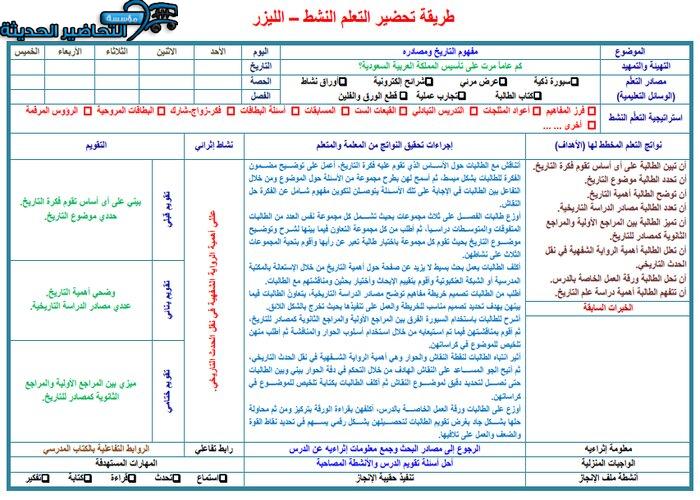 مؤسسة
التحاضير الحديثة
طريقة تحضير التعلم النشط – الليزر
الموضوع
مفهوم التاريخ ومصادره
اليوم
الأحد
الاثنين
الثلاثاء
الأربعاء
الخميس
التهيئة والتمهيد
كم عاماً مرت على تأسيس المملكة العربية السعودية؟
التاريخ
مصادر التعلم
(الوسائل التعليمية)
سبورة ذكية
عرض مرئي
شرائح إلكترونية
أوراق نشاط
الحصة
كتاب الطالبة
تجارب عملية
قطع الورق والفلين
الفصل
استراتيجية التعلم النشط
فرز المفاهيم
أعواد المثلجات
التدريس التبادلي
القبعات الست
المسابقات
أسئلة البطاقات
فكر-زواج-شارك
البطاقات المروحية
الرؤوس المرقمة
أخرى ... ...
نواتج التعلم المخطط لها (الأهداف)
إجراءات تحقيق النواتج من المعلمة والمتعلم
نشاط إثرائي
التقويم
أن تبين الطالبة على أى أساس تقوم فكرة التاريخ.
أن تحدد الطالبة موضوع التاريخ.
أن توضح الطالبة أهمية التاريخ.
أن تعدد الطالبة مصادر الدراسة التاريخية.
أن تميز الطالبة بين المراجع الأولية والمراجع
الثانوية كمصادر للتاريخ.
أن تعلل الطالبة أهمية الرواية الشفهية في نقل
الحدث التاريخي.
أن تحل الطالبة ورقة العمل الخاصة بالدرس.
أن تتفهم الطالبة أهمية دراسة علم التاريخ.
الخبرات السابقة
أتناقش مع الطالبات حول الأساس الذي تقوم عليه فكرة التاريخ، أعمل على توضيح مضمون
الفكرة للطالبات بشكل مبسط، ثم أسمح لهن بطرح مجموعة من الأسئلة حول الموضوع ومن خلال
التفاعل بين الطالبات في الإجابة على تلك الأسئلة يتوصلن لتكوين مفهوم شامل عن الفكرة حل
النقاش.
أوزع طالبات الفصل على ثلاث مجموعات بحيث تشمل كل مجموعة نفس العدد من الطالبات
المتفوقات والمتوسطات دراسياً، ثم أطلب من كل مجموعة التعاون فيما بينها لشرح وتوضيح
موضوع التاريخ بحيث تقوم كل مجموعة باختيار طالبة تعبر عن رأيها وأقوم بتحية المجموعات
الثلاث على نشاطهن.
أكلف الطالبات بعمل بحث بسيط لا يزيد عن صفحة حول أهمية التاريخ من خلال الإستعانة بالمكتبة
المدرسية أو الشبكة العنكبوتية وأقوم بتقييم الإبحاث وأختيار بحثين ومناقشتهم مع الطالبات.
أطلب من الطالبات تصميم خريطة مفاهيم توضح مصادر الدراسة التاريخية، يتعاون الطالبات فيما
بينهن بهدف تحديد تصميم مناسب للخريطة والعمل على تنفيذها بحيث تخرج بالشكل اللائق.
أشرح للطالبات باستخدام السبورة الفرق بين المراجع الأولية والمراجع الثانوية كمصادر للتاريخ،
ثم أقوم بمناقشتهن فيما تم استيعابه من خلال استخدام أسلوب الحوار والمناقشة ثم أطلب منهن
تلخيص للموضوع في كراساتهن.
أثير انتباه الطالبات لنقطة النقاش والحوار وهي أهمية الرواية الشفهية في نقل الحدث التاريخي،
ثم أتيح الجو المساعد على النقاش الهادف من خلال التحكم في دفة الحوار بيني وبين الطالبات
حتى نصل لتحديد دقيق لموضوع النقاش ثم أكلف الطالبات بكتابة تلخيص للموضوع في
كراساتهن.
أوزع على الطالبات ورقة العمل الخاصة بالدرس، أكلفهن بقراءة الورقة بتركيز ومن ثم محاولة
حلها بشكل جاد بغرض تقويم الطالبات لتحصيلهن بشكل رقمي يسهم في تحديد نقاط القوة
والضعف والعمل على تلافيها.
عللي أهمية الرواية الشفهية في نقل الحدث التاريخي.
تقويم قبلي
بيني على أى أساس تقوم فكرة التاريخ.
حددي موضوع التاريخ.
تقويم بنائي
وضحي أهمية التاريخ.
عددي مصادر الدراسة التاريخية.
تقويم ختامي
ميزي بين المراجع الأولية والمراجع
الثانوية كمصادر للتاريخ.
معلومة إثرائيه
الرجوع الى مصادر البحث وجمع معلومات إثراءيه عن الدرس
رابط تفاعلي
الروابط التفاعلية بالكتاب المدرسي
الواجبات المنزلية
أحل أسئلة تقويم الدرس والأنشطة المصاحبة
المهارات المستهدفة
أنشطة ملف الإنجاز
تنفيذ حقيبة الإنجاز
استماع
تحدث
قراءة
كتابة
تفكير